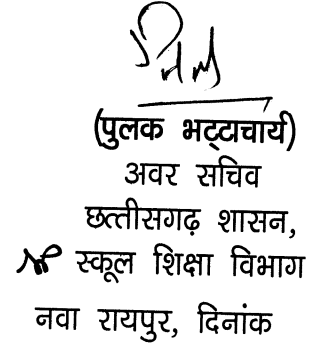 (पुलक भट्टाचार्य)
अवर सचिव
छत्तीसगढ़ शासन,
स्कूल शिक्षा विभाग
नवा रायपुर, दिनांक